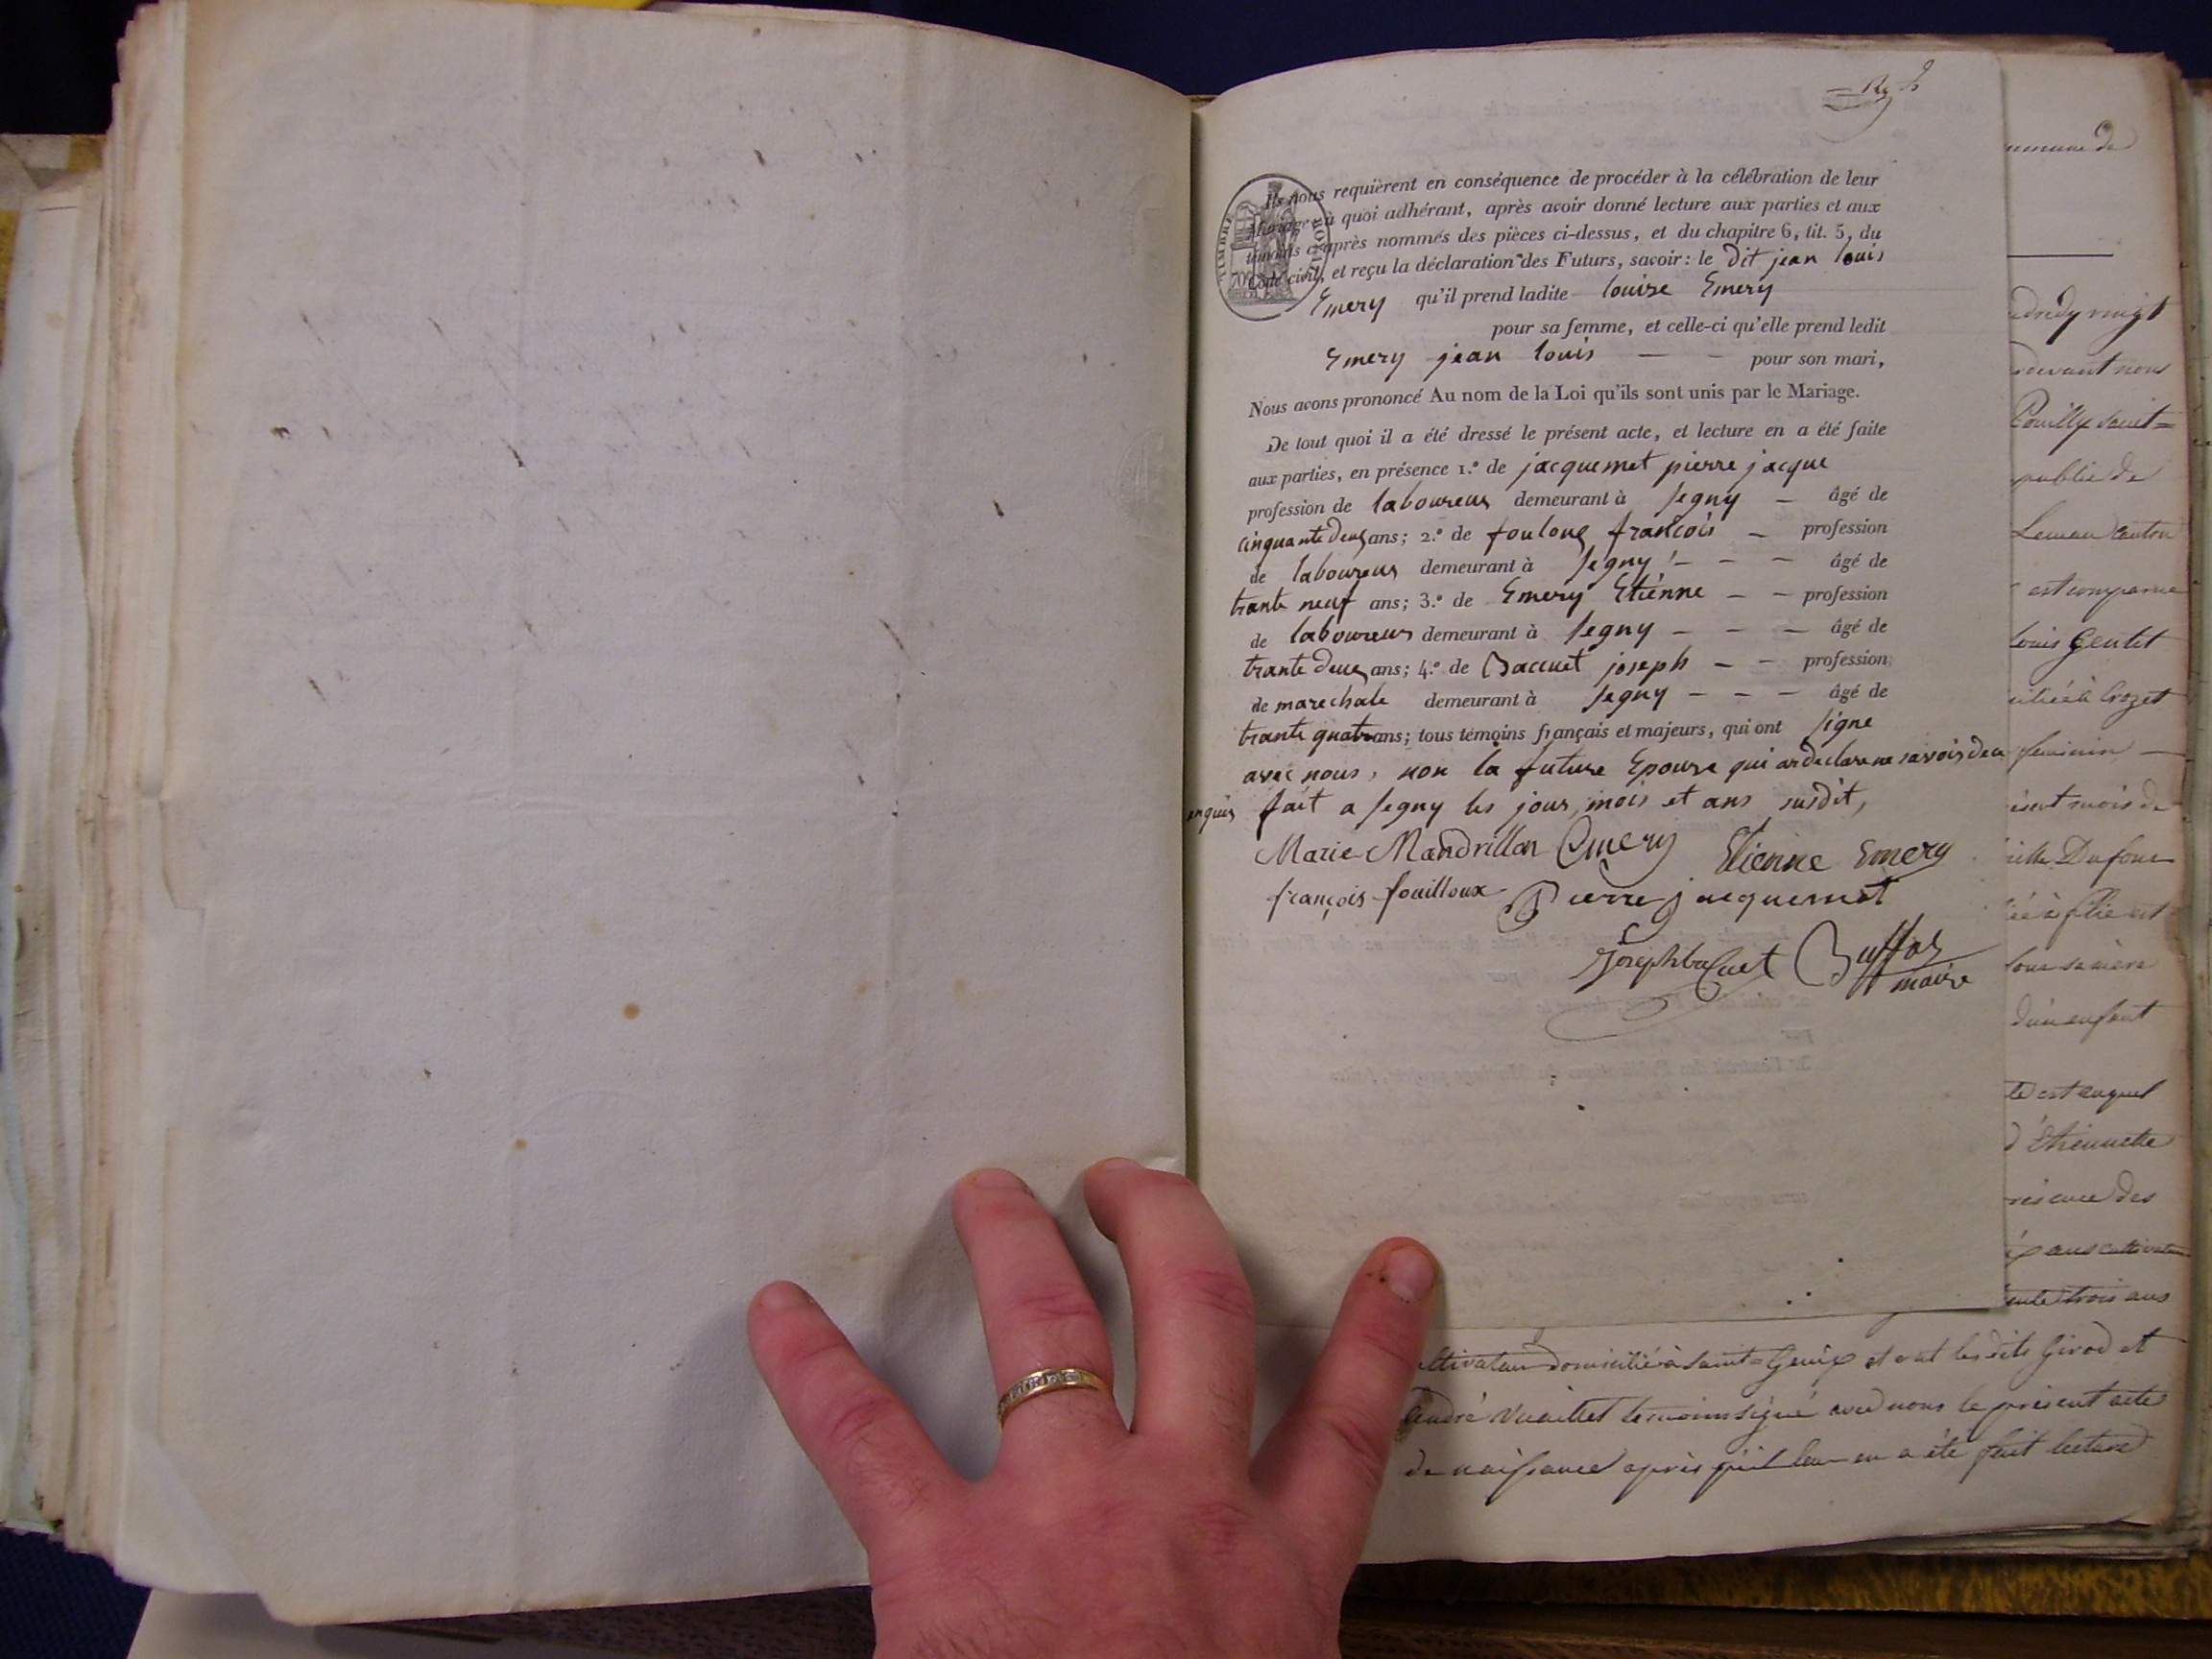 Ils nous requièrent en conséquence de procéder à la célébration de leur
Mariage; à quoi adhérant, après avoir donné lecture aux parties et aux
témoins ci-après nommés des pièces ci-dessus, et du chapitre 6, tit. 5, du
Code civil, et reçu la déclaration des Futurs, savoir: le dit jean louis
Emery qu'il prend ladite louise Emery
pour sa femme, et celle-ci qu'elle prend ledit
Emery jean louis — — pour son mari,
Nous avons prononcé Au nom de la Loi qu'ils sont unis par le Mariage.
De tout quoi il a été dressé le présent acte, et lecture en a été faite
aux parties, en présence 1.º de jacquemet pierre jacque
profession de laboureur demeurant à segny — âgé de
cinquante deux ans; 2.º de fouloux francois — profession
de laboureur demeurant à segny — — — âgé de
trante neuf ans; 3.º de Emery Etiénne — — profession
de laboureur demeurant à segny — — — âgé de
trante deux ans; 4.º de Baccuet joseph — — profession
de marechale demeurant à segny — — — âgé de
trante quatre ans; tous témoins français et majeurs, qui ont signe
avec nous, non la future Epouse qui a declare ne savoir de ce
enquis fait a segny les jour, mois et ans susdit,
Marie Mandrillon Emery Etienne Emery
françois fouilloux Pierre jacquemet
Joseph bacuet Buffaz
maire
TIMBRE ROYAL
70
commune de
vendredy vingt
devant nous
Pouilly saint=
publie de
Leman Canton
est comparue
Louis Gentet
Crozet
feminin —
présent mois de
Dufour
sa mère
d'un enfant
d'Ethiennette
présence des
ans cultivateur
trente trois ans
cultivateur domicilié à Saint=Genix et ont lesdits Girod et
André Vuaillet temoins signé avec nous le présent acte
de naissance après qu'il leur en a été fait lecture